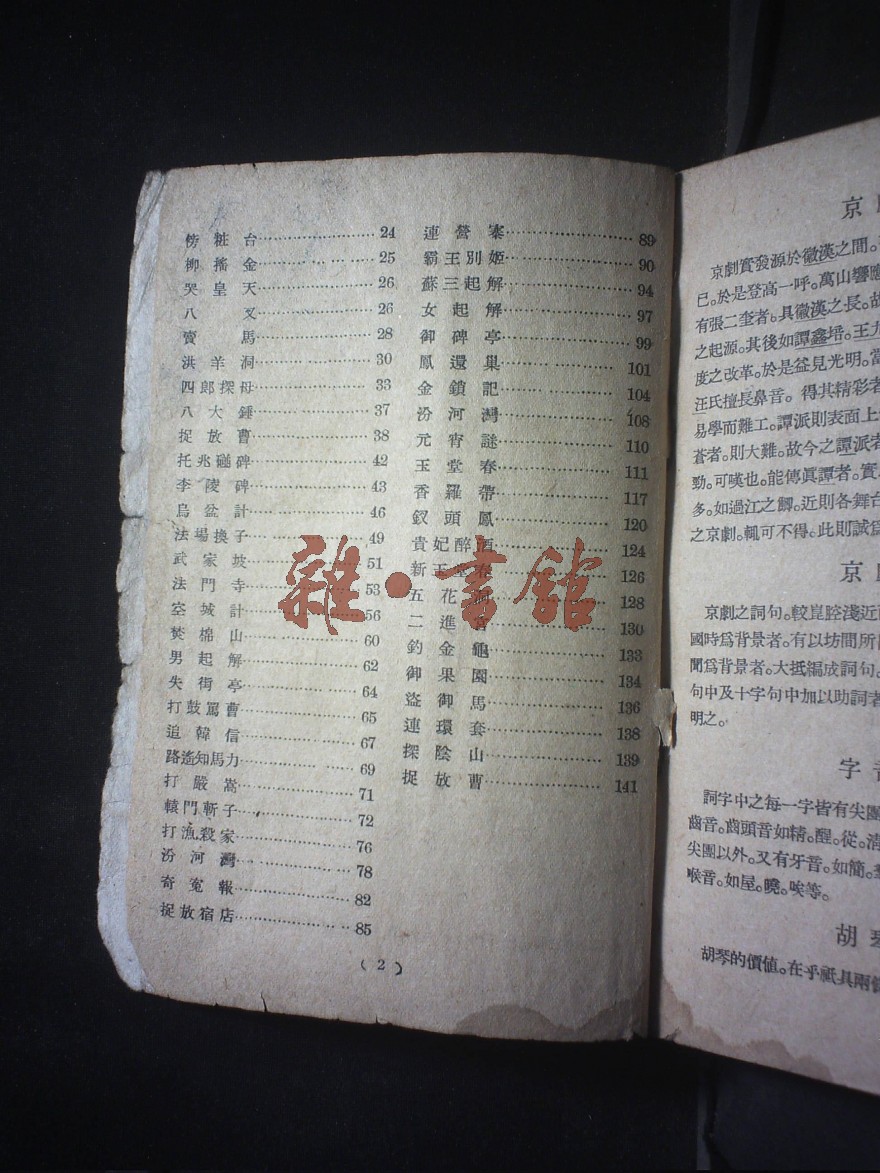 傍粧台 24
柳搖金 25
哭皇天 26
八叉 26
賣馬 28
洪羊洞 30
四郎探母 33
八大錘 37
捉放曹 38
托兆碰碑 42
李陵碑 43
烏盆計 46
法場換子 49
武家坡 51
法門寺 53
空城計 56
焚棉山 60
男起解 62
失街亭 64
打鼓罵曹 65
追韓信 67
路遙知馬力 69
打嚴嵩 71
轅門斬子 72
打漁殺家 76
汾河灣 78
奇冤報 82
捉放宿店 85
連營寨 89
霸王別姬 90
蘇三起解 94
女起解 97
御碑亭 99
鳳還巢 101
金鎖記 104
汾河灣 108
元宵謎 110
玉堂春 111
香羅帶 117
釵頭鳳 120
貴妃醉酒 124
新玉堂春 126
五花洞 128
二進宮 130
釣金龜 133
御果園 134
盜御馬 136
連環套 138
探陰山 139
捉放曹 141
(2)
雜·書館
京
京劇實發源於徽漢之間。
已。於是登高一呼。萬山響應
有張二奎者。具徽漢之長。故
之起源。其後如譚鑫培。王九
度之改革。於是益見光明。當
汪氏擅長鼻音。得其精彩者
易學而難工。譚派則表面上
蒼者。則大難。故今之譚派者
勁。可嘆也。能傳眞譚者。實
多。如過江之鯽。近則各舞台
之京劇。輒可不得。此則誠爲
京
京劇之詞句。較崑腔淺近
國時爲背景者。有以坊間所
聞爲背景者。大抵編成詞句。
句中及十字句中加以助詞者
明之。
字音
詞字中之每一字皆有尖團
齒音。齒頭音如精。醒。從。清
尖團以外。又有牙音。如簡。
喉音。如屋。曉。唉等。
胡琴
胡琴的價値。在乎祇具兩